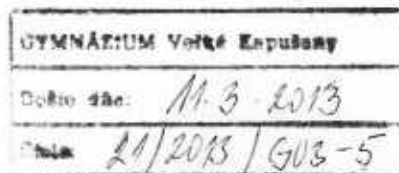 GYMNÁZIUM Veľké Kapušany
Došlo dňa: 11.3-2013
Číslo 21/2013/GU3-5